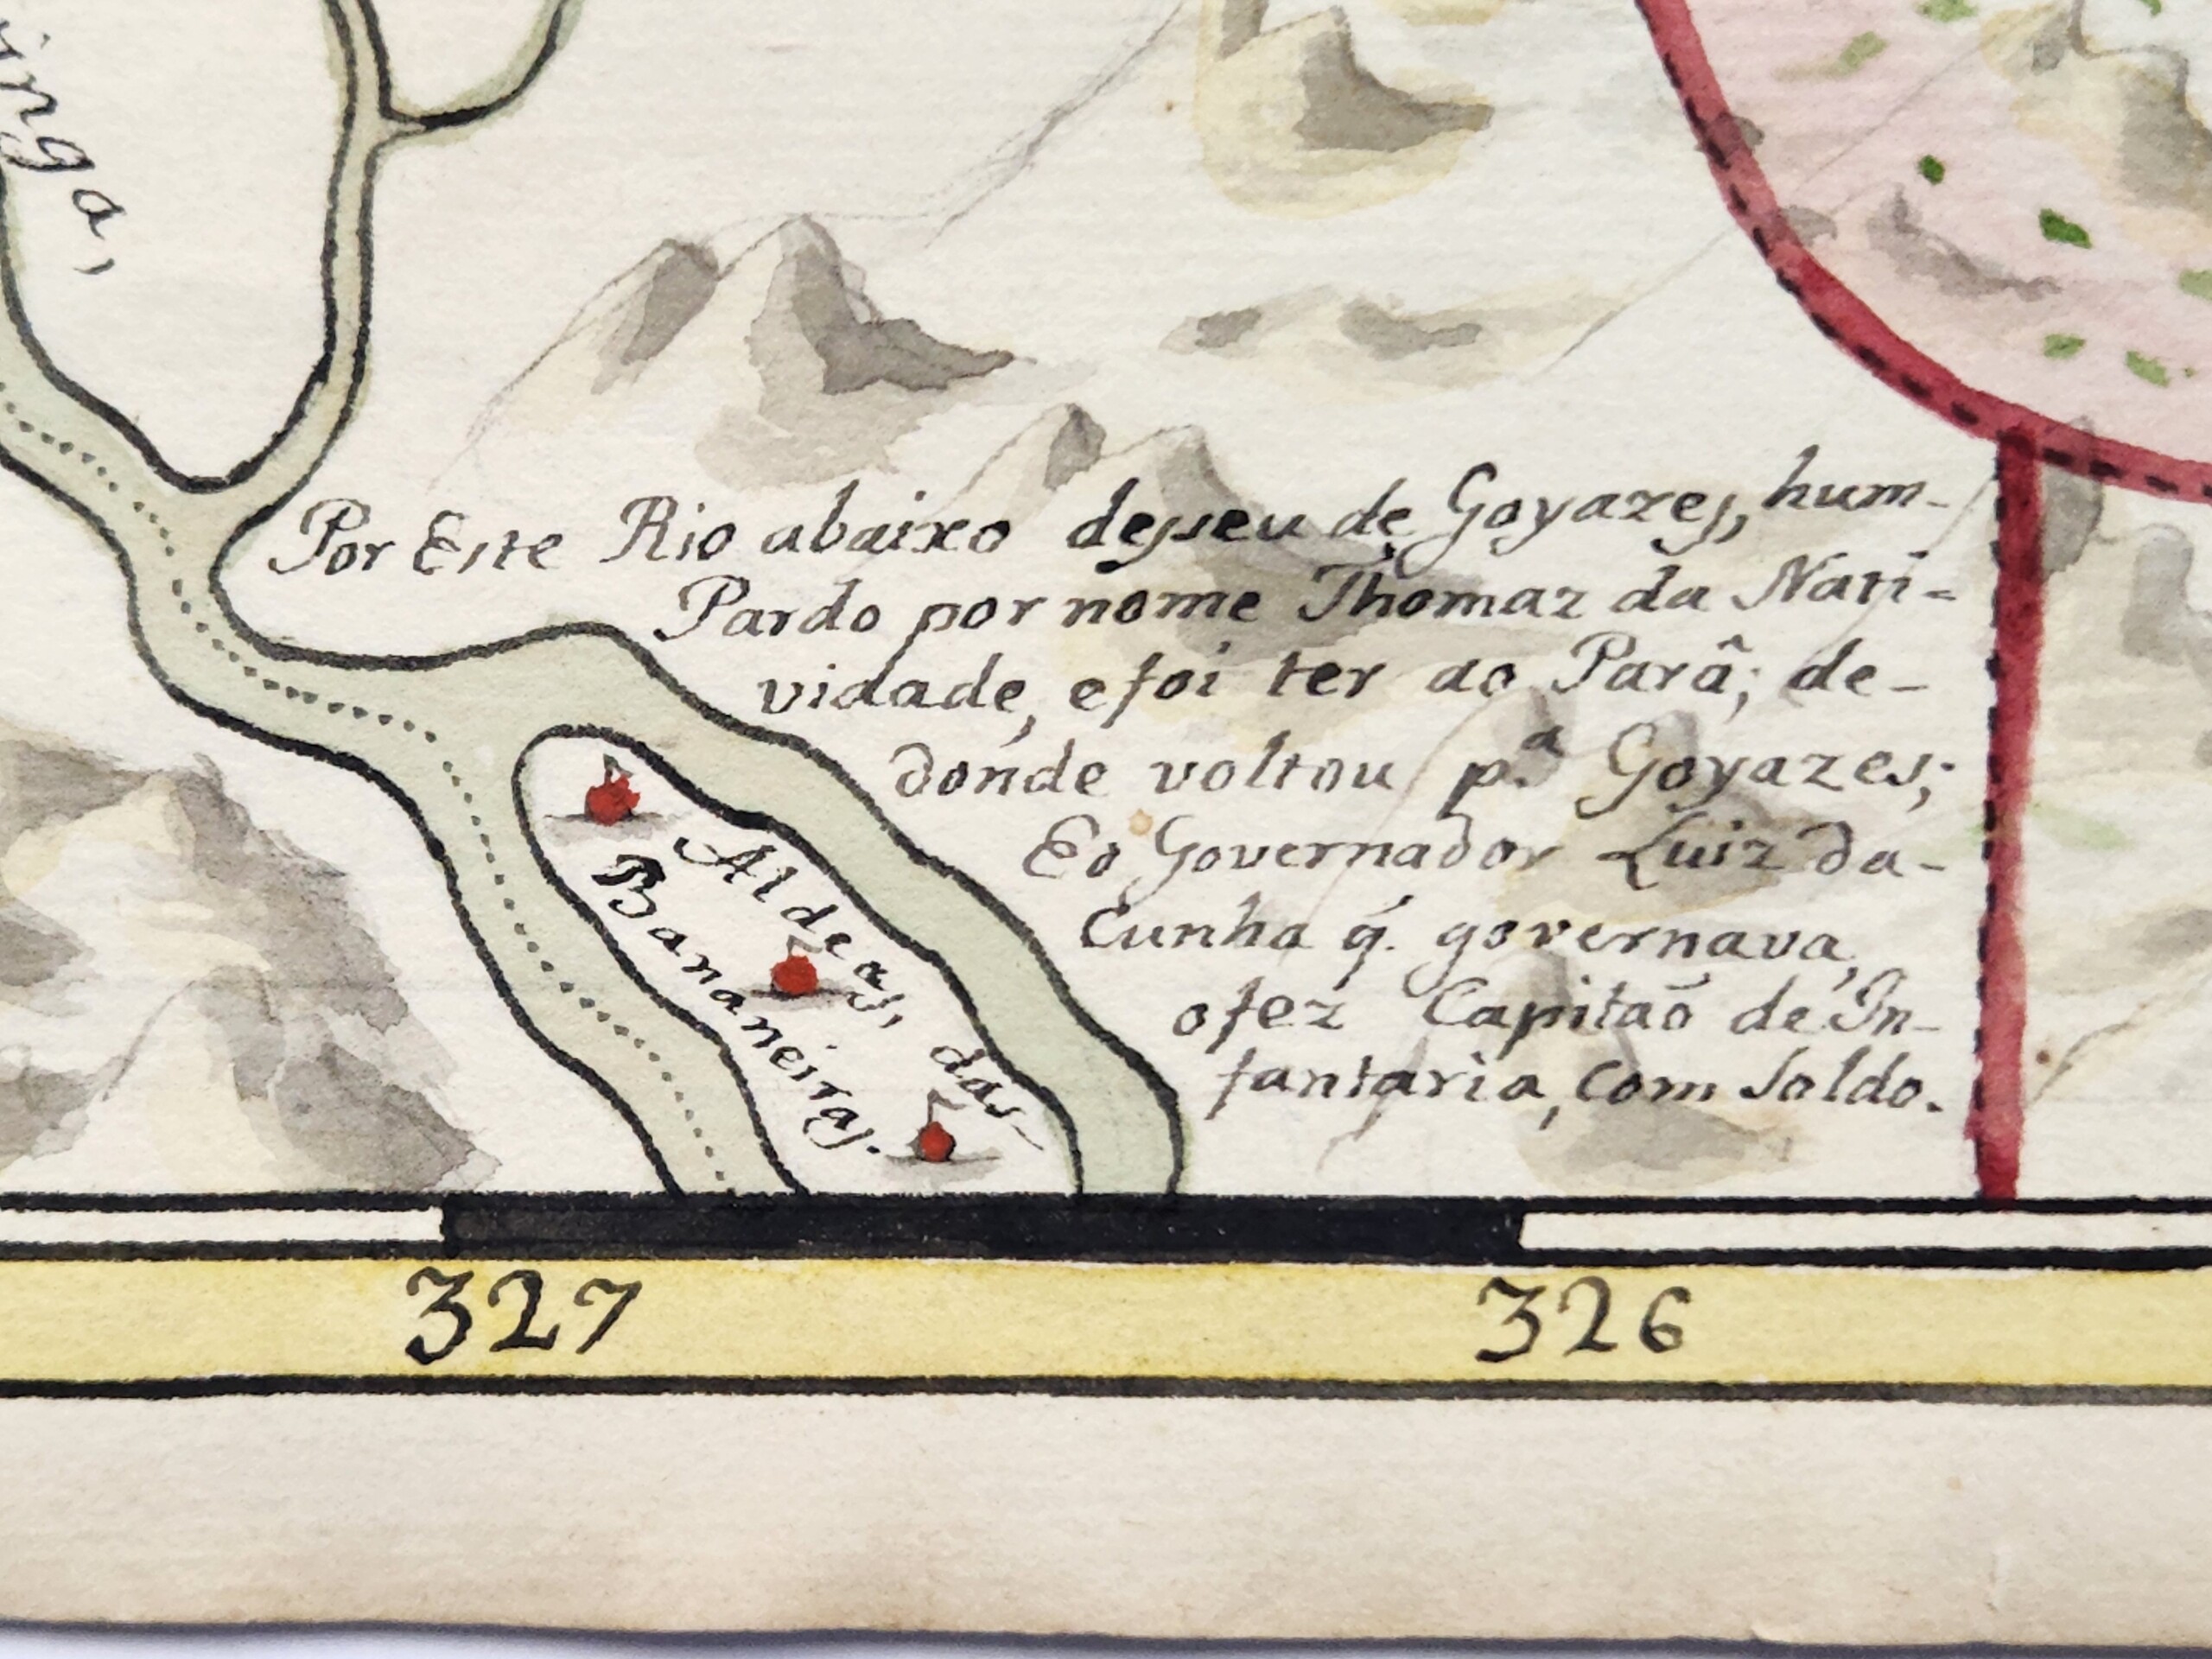 inga,
Por Este Rio abaixo desseu de Goyazes, hum-
Pardo por nome Thomaz da Nati-
vidade, e foi ter ao Parâ; de-
donde voltou p.ª Goyazes;
Eo Governador Luiz da-
Cunha q̃. governava,
ofez Capitaõ de In-
fantaria, Com Soldo.
Aldeas, das
Bananeiras.
327
326